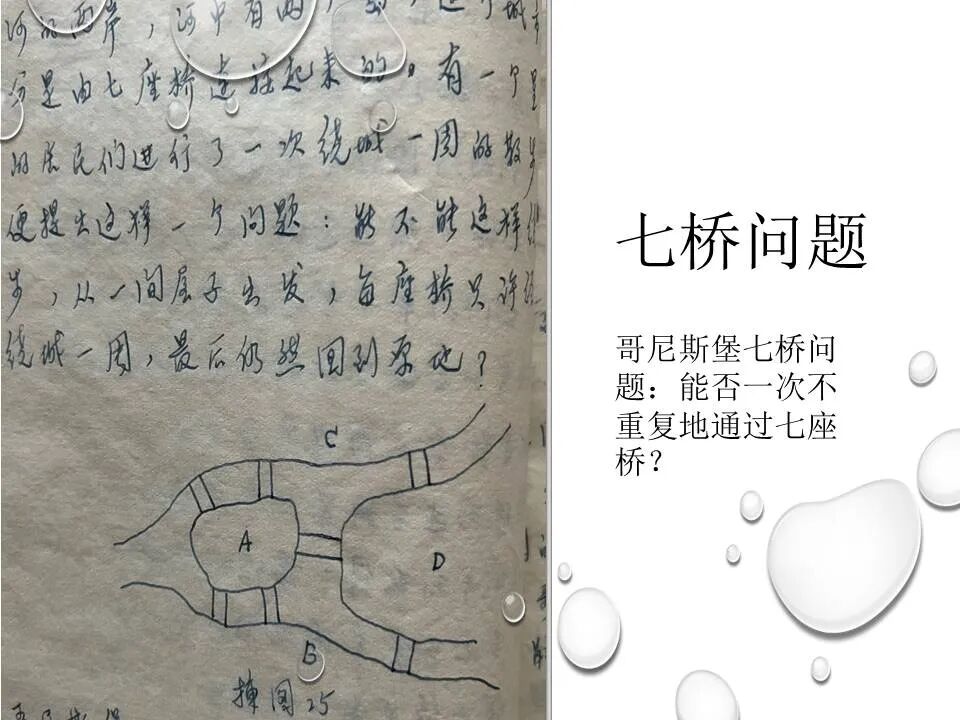 河的两岸，河中有两
分是由七座桥连接起来的。有一个星
的居民们进行了一次绕城一周的散步
便提出这样一个问题：能不能这样
步，从一间屋子出发，每座桥只许
绕城一周，最后仍然回到原地？
C
A
D
B
插图25
七桥问题
哥尼斯堡七桥问
题：能否一次不
重复地通过七座
桥？